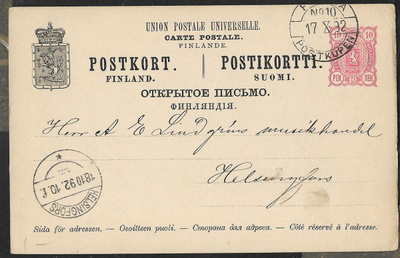 UNION POSTALE UNIVERSELLE.
CARTE POSTALE.
FINLANDE.
POSTKORT. POSTIKORTTI.
FINLAND. SUOMI.
ОТКРЫТОЕ ПИСЬМО.
ФИНЛЯНДІЯ.
No 10
17 X 92
POSTKUPEN
10 10
PEN. PEN.
Herr A E Lindgrins musikhandel
Helsingfors
HELSINGFORS
18 10 92. 10. f.
Sida för adressen. — Osoitteen puoli. — Сторона для адреса. — Côté réservé à l'adresse.